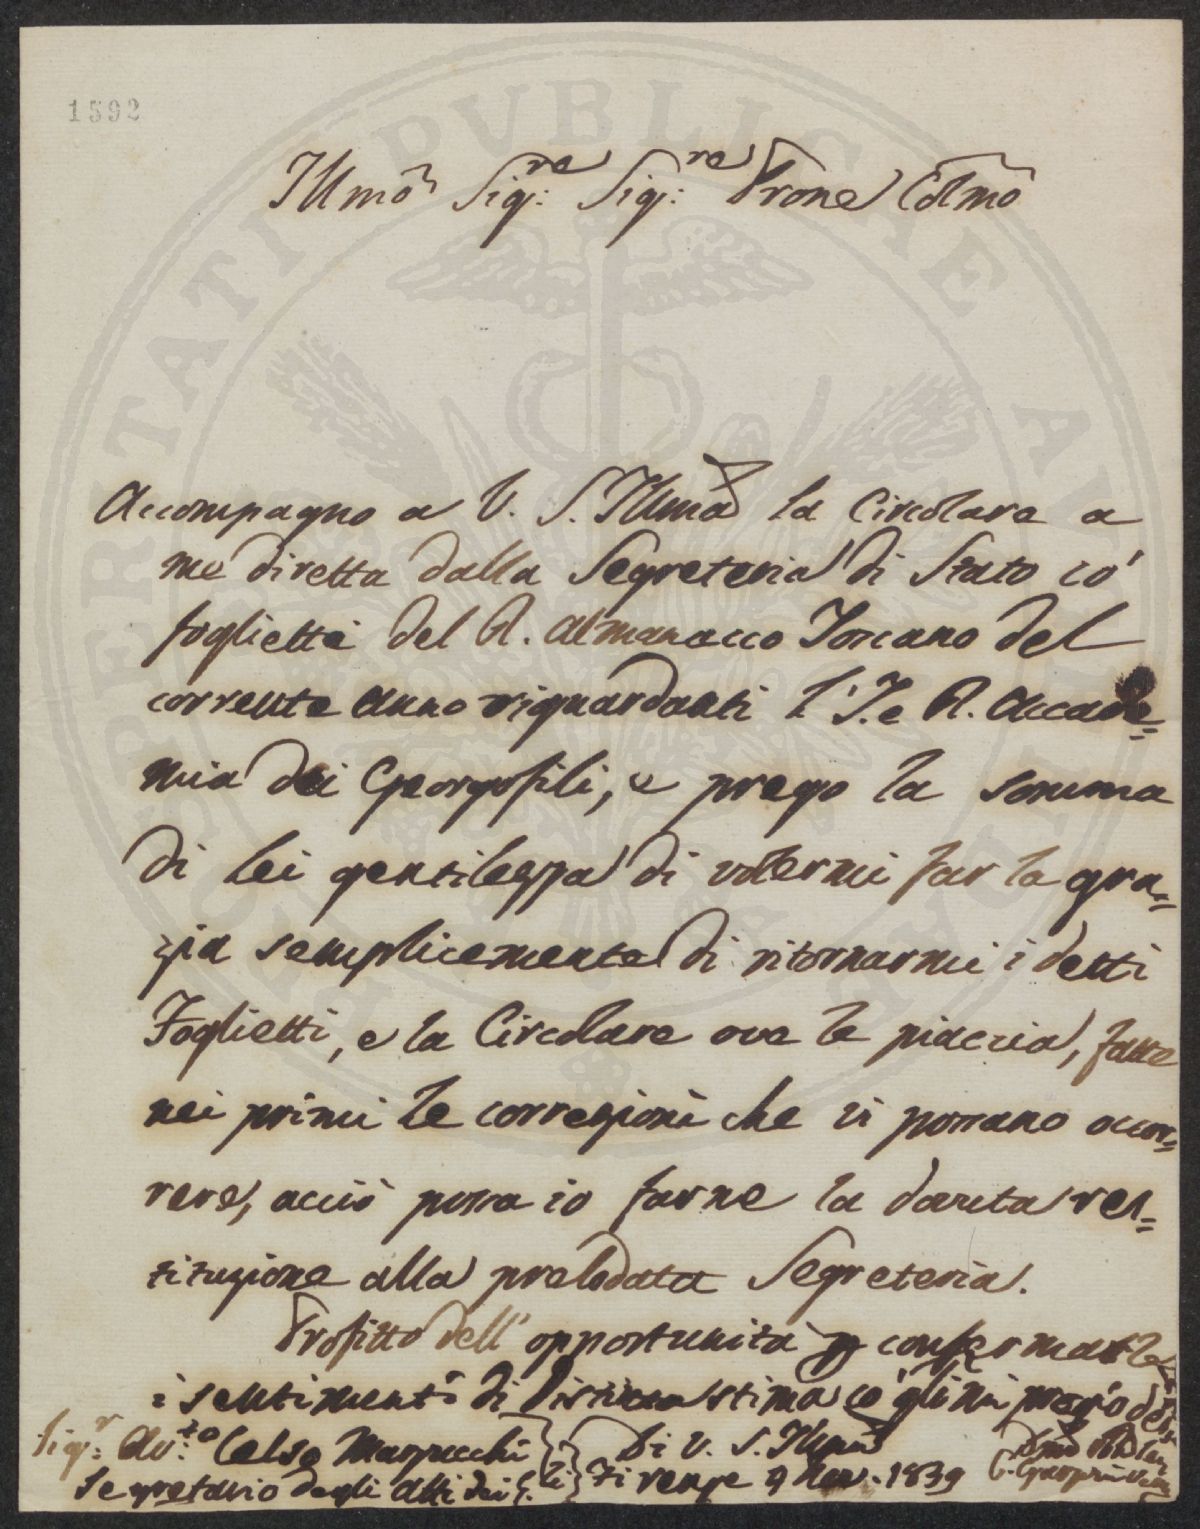 1592
Illmo Sig:re Sig:re Prone Colmo
Accompagno a V. S. Illma la Circolare a
me diretta dalla Segreteria di Stato co'
foglietti del R. Almanacco Toscano del
corrente Anno riguardanti l'I. e R. Accade=
mia dei Georgofili, e prego la somma
di lei gentilezza di volermi far la gra=
zia semplicemente di ritornarmi i detti
Foglietti, e la Circolare ove le piaccia, fatte
nei primi le correzioni che vi possano occor=
rere, acciò possa io farne la dovuta res=
tituzione alla prelodata Segreteria.
Profitto dell'opportunità p confermarle
i sentimenti di distinta stima co' gli mi pregio
Sig:r Av:to Celso Marzucchi
Di V. S. Illma
Segretario degli Atti dei G.
Firenze 9 Nov. 1839
PROSPERITATI PUBLICAE AUGENDAE